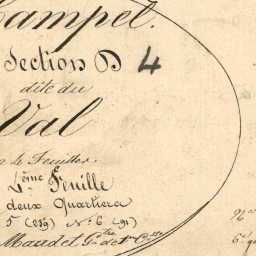 Campel.
Section D 4
dite du
Val
en 4 Feuilles.
4ème Feuille
deux Quartiers
5 (259) N° 6 (91)
Maudet, G